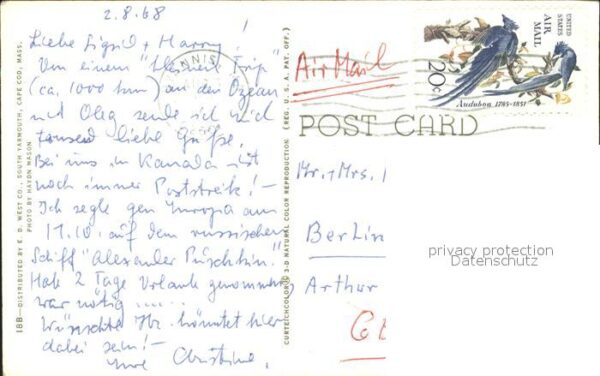 2.8.68
Liebe Sigrid + Harry!
Von einem "kleinen Trip"
(ca. 1000 km) an den Ozean
mit Oleg sende ich euch
tausend liebe Grüße.
Bei uns in Kanada ist
noch immer Poststreik! -
Ich segle gen Europa am
17.10. auf dem russischen
Schiff "Alexander Puschkin."
Hab 2 Tage Urlaub genommen,
war nötig .....
Wünschte Ihr könntet hier
dabei sein! -
Eure Christine.
18B—DISTRIBUTED BY E. D. WEST CO., SOUTH YARMOUTH, CAPE COD, MASS.
PHOTO BY HAYDN MASON
CURTEICHCOLOR® 3-D NATURAL COLOR REPRODUCTION (REG. U. S. A. PAT. OFF.)
NNIS
Air Mail
POST CARD
UNITED
STATES
AIR
MAIL
20c
Audubon 1785-1851
Mr. + Mrs.
Berlin
Arthur
GE
privacy protection
Datenschutz